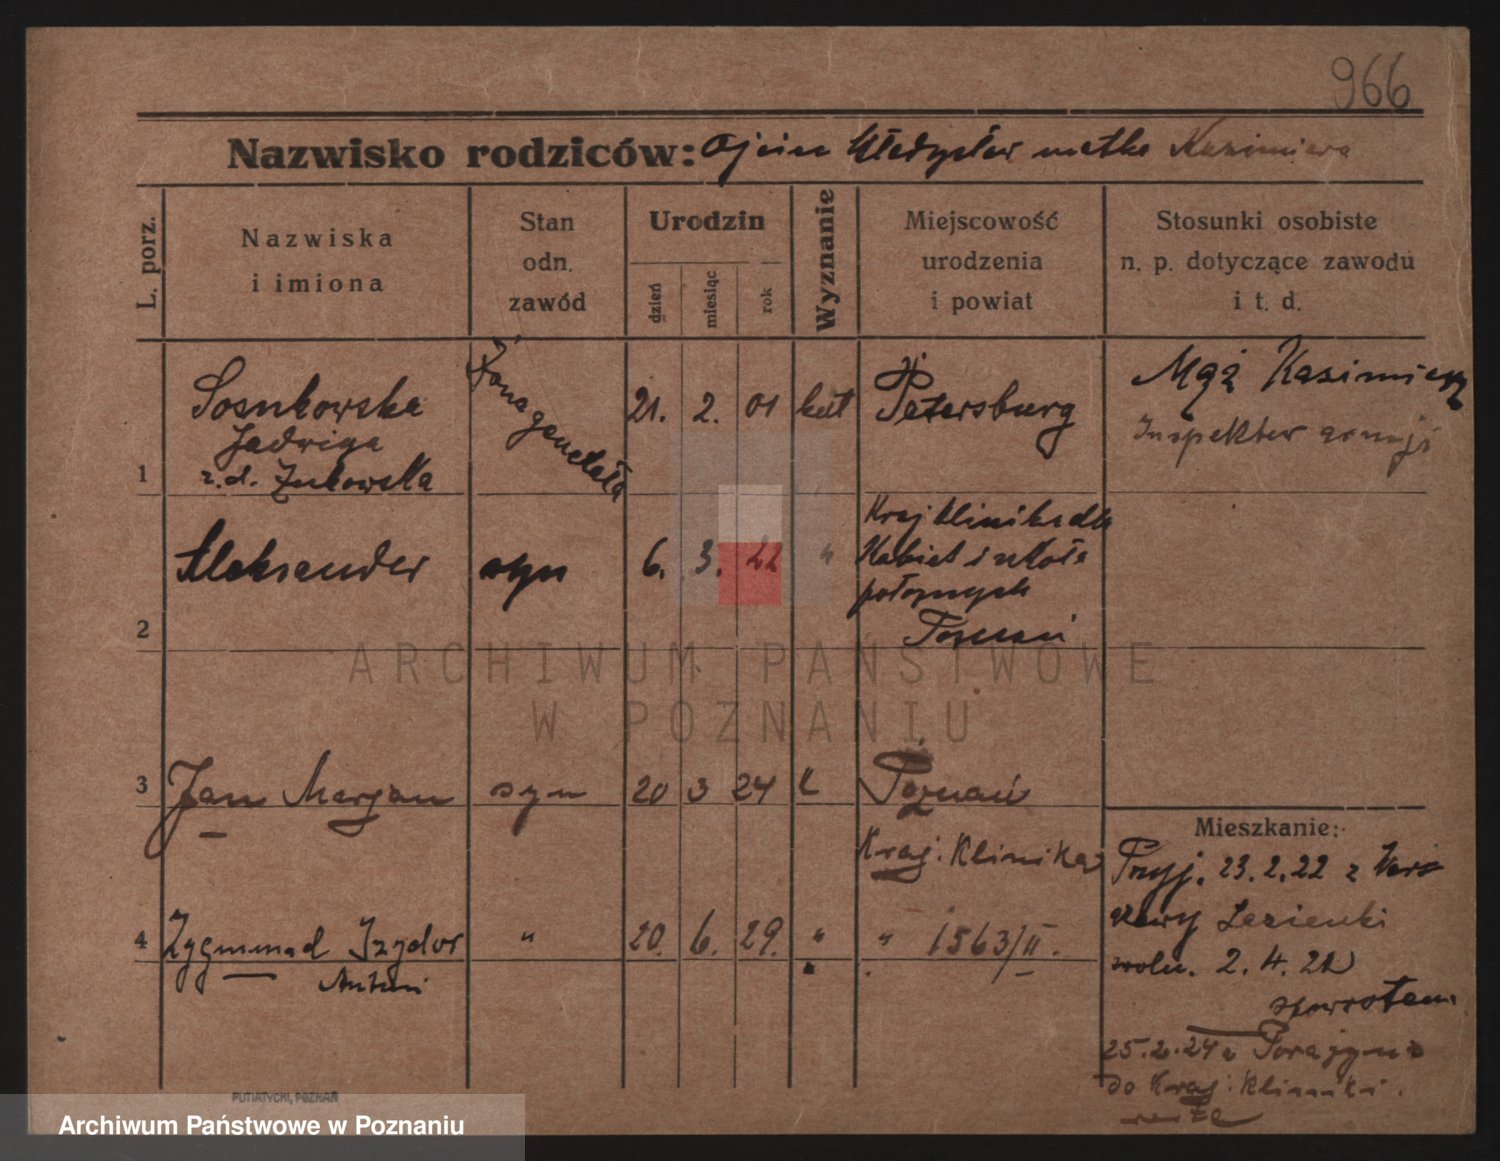 966
Nazwisko rodziców: Ojciec Władysław matka Kazimiera
L. porz.
Nazwiska
i imiona
Stan
odn.
zawód
Urodzin
dzień
miesiąc
rok
Wyznanie
Miejscowość
urodzenia
i powiat
Stosunki osobiste
n. p. dotyczące zawodu
i t. d.
1
Sosnkowska
Jadwiga
z.d. Żukowska
Żona generała
21. 2. 01 kat
Petersburg
Mąż Kazimierz
Inspektor armji
2
Aleksander
syn
6. 3. 22 "
Kraj klinika dla
Kobiet i szkoła
położnych
Poznań
3
Jan Marjan
syn
20 3 24 K
Poznań
Kraj. Klinika
4
Zygmunad Izydor
Antoni
"
20. 6. 29. "
" 1563/II.
Mieszkanie:
Przyj. 23.2.22 z War
szawy Łazienki
2.4.22
spowrotem
25.2.24 z Porażyna
do Kraj. Kliniki.
PUTIATYCKI, POZNAŃ
ARCHIWUM PAŃSTWOWE
W POZNANIU
Archiwum Państwowe w Poznaniu